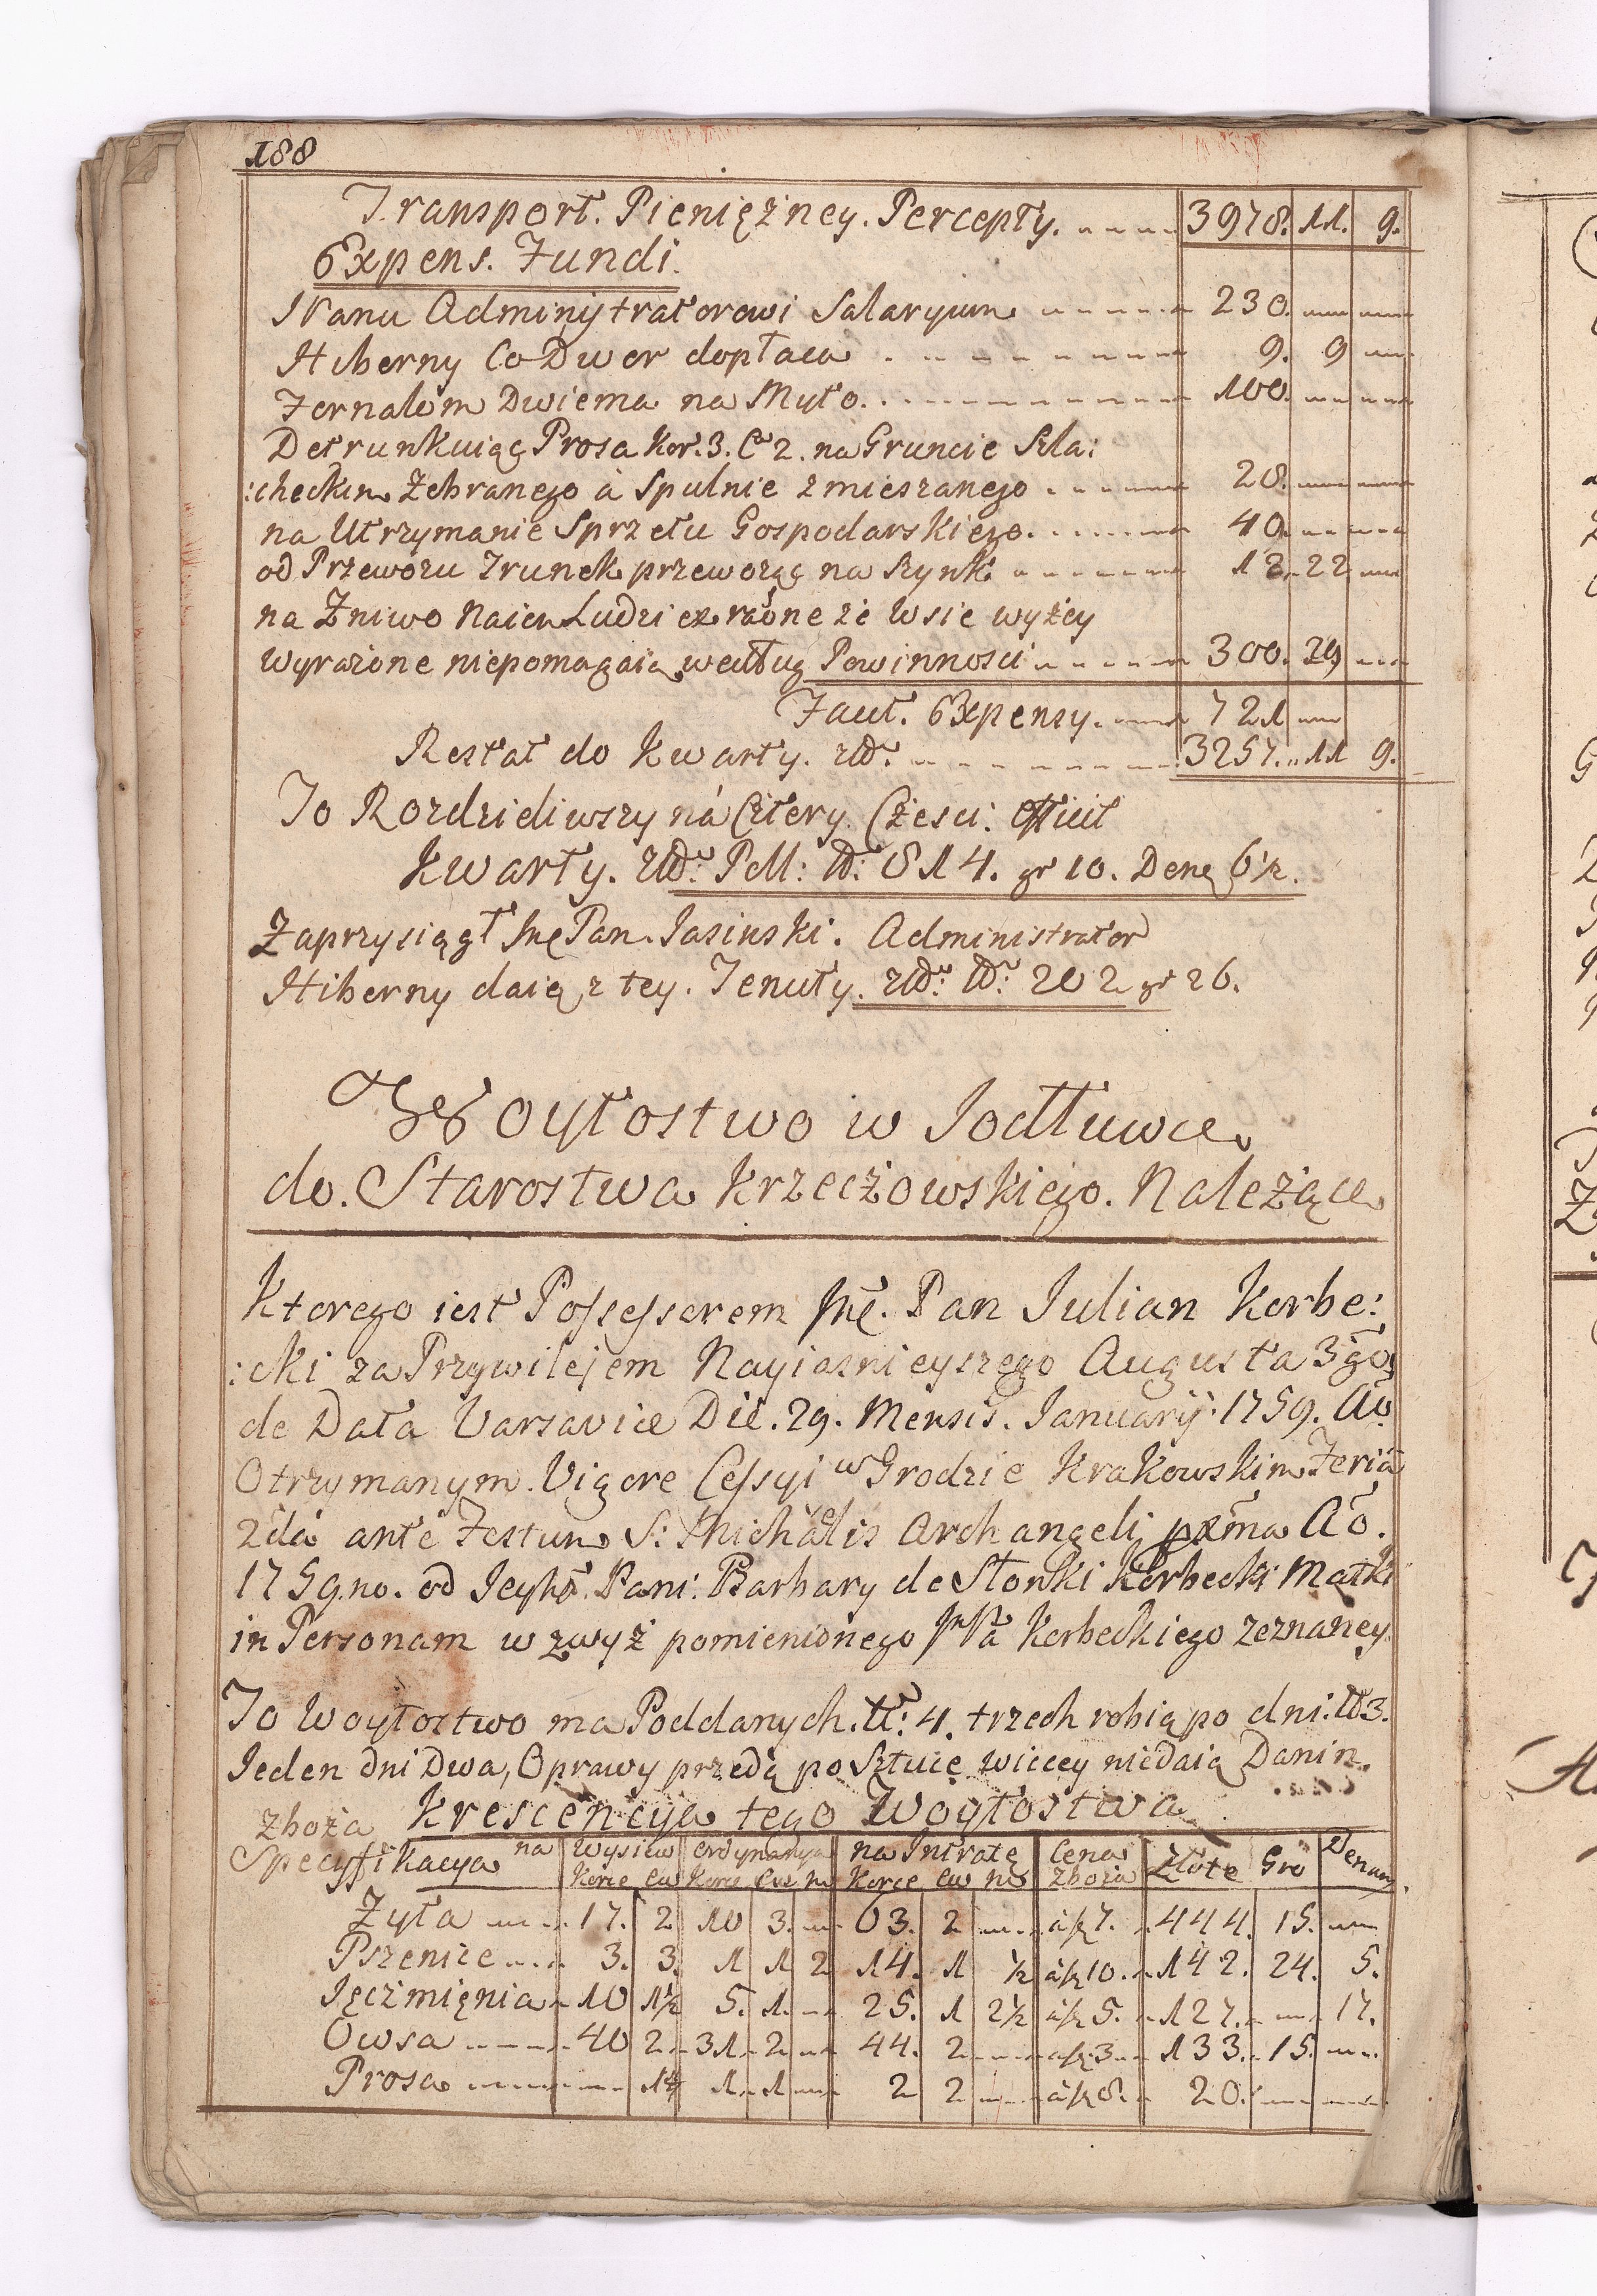 188
Transport. Pieniężney. Percepty. 3978. 11. 9.
Expens. Fundi.
Panu Administratorowi Salaryum 230.
Hiberny Co Dwor dopłaca 9. 9
Fornalom Dwiema na Myto. 100.
Detrunkuiąc Prosa Kor: 3. Cw 2. na Gruncie Szla:
:checkim Zebranego á Spulnie zmieszanego 28.
na Utrzymanie Sprzetu Gospodarskiego. 40.
od Przewozu Trunek przewożąc na Szynk 12. 22
na Zniwo Naiem Ludzi ex raone że Wsie wyżey
wyrażone niepomagaią według Powinnosci 300. 29
Faut. Expensy. 721
Restat do Kwarty. złł. 3257. 11 9.
To Rozdzieliwszy ná Cztery. Części: efficit
Kwarty. złł: Poll: N: 814. gr 10. Den: 6½.
Zaprzysiągł Jmć Pan. Jasinski. Administrator
Hiberny daią z tey. Tenuty. złł: N: 202 gr 26.
Woytostwo w Jodłuwce
do. Starostwa Krzeczowskiego. Należące
Ktorego iest Possessorem Jmć. Pan Julian Korbe:
:cki za Przywilejem Nayiasnieyszego Augusta 3go
de Data Varsavice Die. 29. Mensis. Januarij. 1759. Ao
Otrzymanym. Vigore Cessyi w Grodzie Krakowskim Feria
2da ante Festum S: Michaelis Archangeli pxma Ao.
1759.no. od Jeymć. Pani: Barbary de Słonki Korbecki Matki
in Personam w zwyż pomienionego JmPa Korbeckiego zeznaney.
To Woytostwo ma Poddanych. N: 4. trzech robią po dni: N 3.
Jeden dni Dwa, Oprawy przedą po Sztuce więcey niedaią Danin.
Krescencya tego Woytostwa
Zboża Specyfikacya na Wysiew Ordynarya na Intratę Cena Zboża Złote Gro Denary
Korce Cw Korce Cw M Korce Cw M
Żyta 17. 2 10 3. 63. 2 á ƒ 7. 444. 15.
Pszenice 3. 3. 1 1 2 14. 1 ½ á ƒ 10. 142. 24. 5.
Jęczmięnia 10 1½ 5. 1. 25. 1 2½ á ƒ 5. 127. 17.
Owsa 40 2 31 2 44. 2 á ƒ 3 133. 15.
Prosa 1 1 2 2 á ƒ 8. 20.